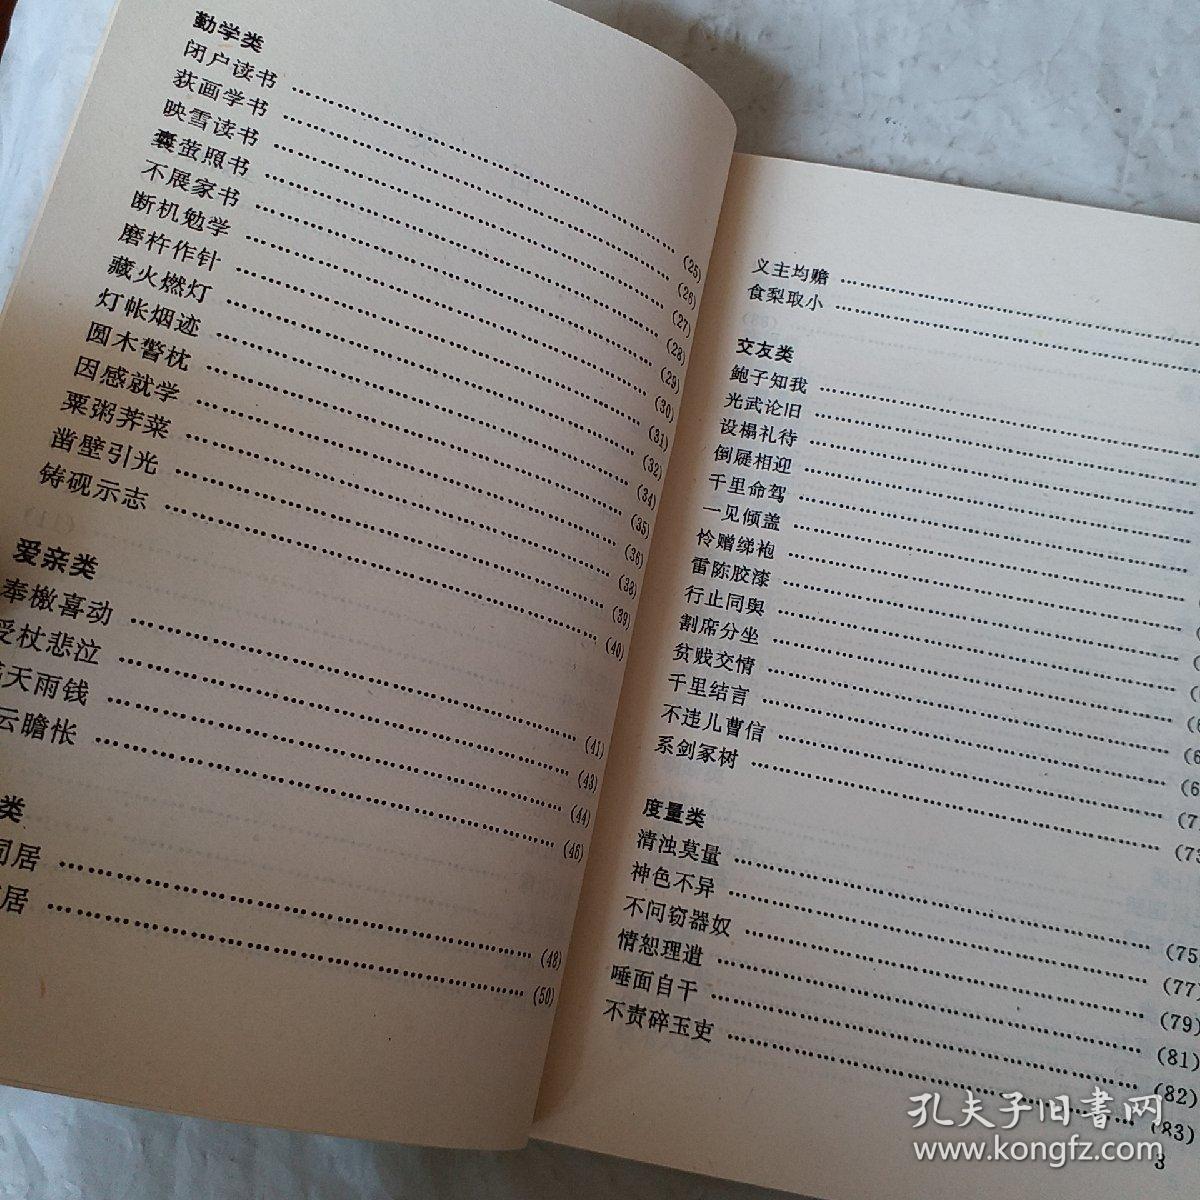 勤学类
闭户读书……(25)
荻画学书……(26)
映雪读书……(27)
囊萤照书……(28)
不展家书……(29)
断机勉学……(30)
磨杵作针……(31)
藏火燃灯……(32)
灯帐烟迹……(34)
圆木警枕……(35)
因感就学……(36)
粟粥荠菜……(38)
凿壁引光……(39)
铸砚示志……(40)
爱亲类
奉檄喜动……(41)
受杖悲泣……(43)
天雨钱……(44)
云瞻怅……(46)
类
同居……(48)
居……(50)
义主均赡……
食梨取小……
交友类
鲍子知我……
光武论旧……
设榻礼待……
倒屣相迎……
千里命驾……
一见倾盖……
怜赠绨袍……
雷陈胶漆……
行止同舆……
割席分坐……
贫贱交情……
千里结言……
不违儿曹信……
系剑冢树……(73
度量类
清浊莫量……(75
神色不异……(77)
不问窃器奴……(79)
情恕理遣……(81)
唾面自干……(82)
不责碎玉吏……(83)
3
孔夫子旧书网
www.kongfz.com